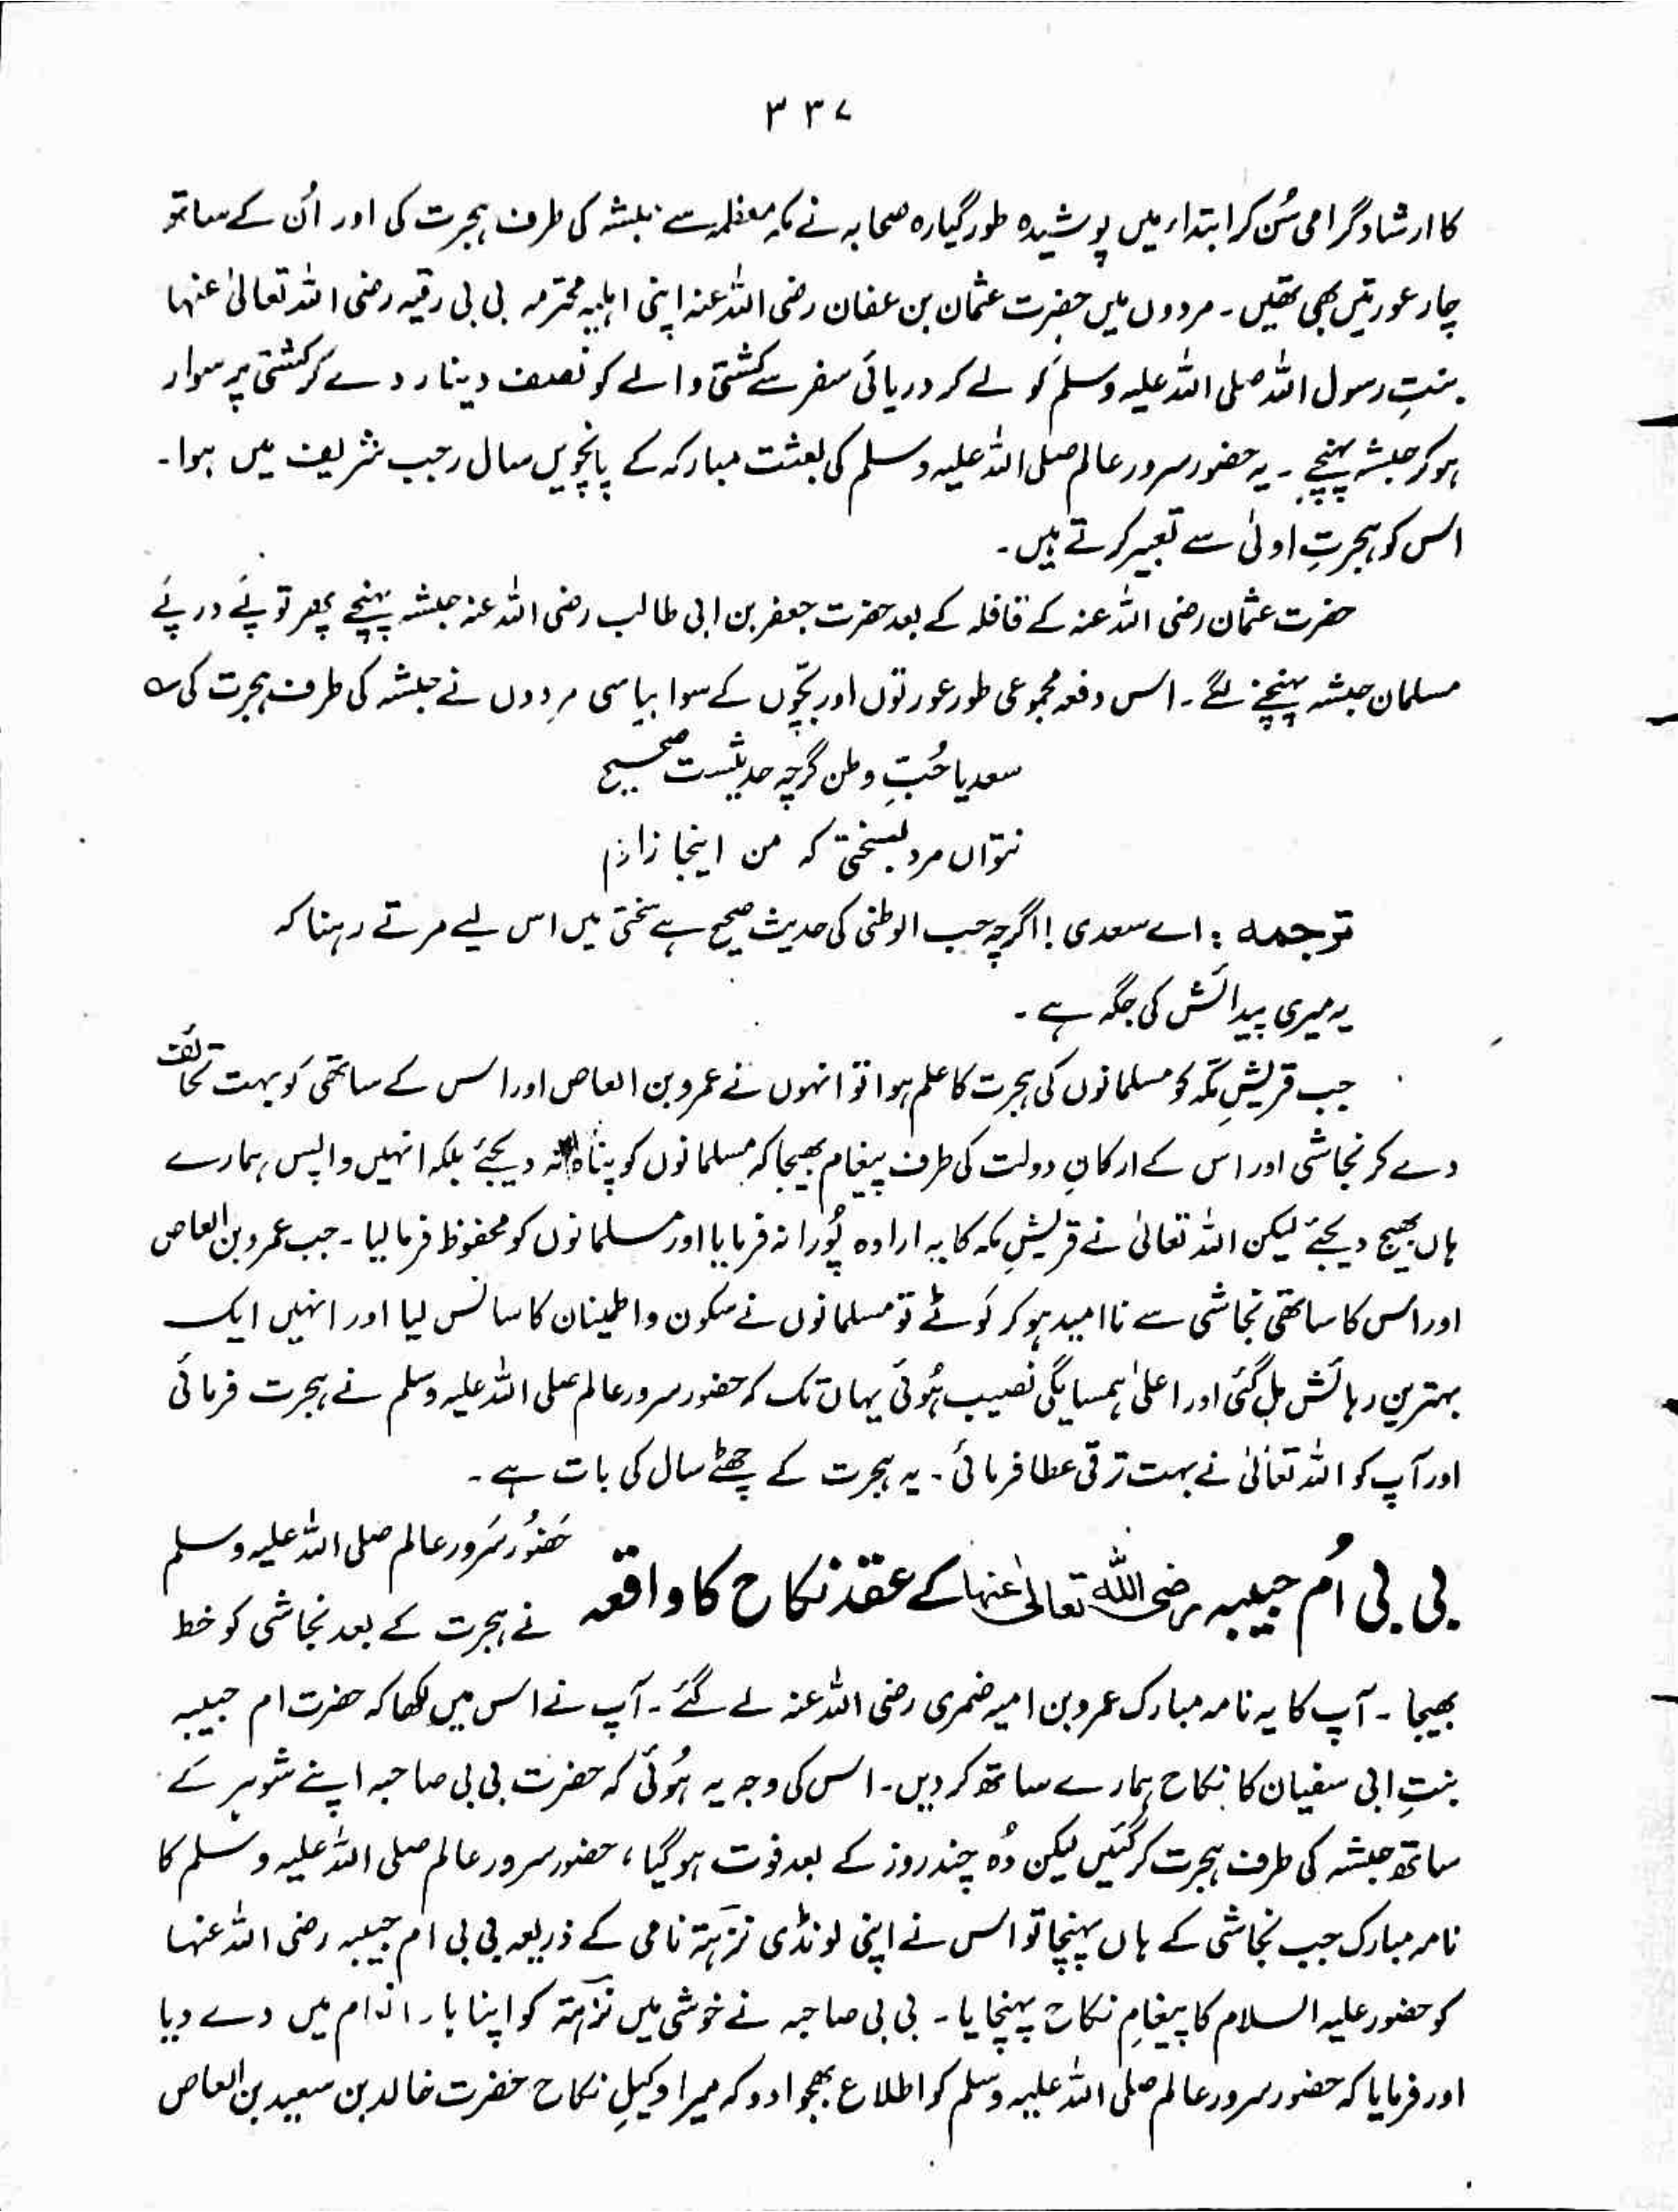 ۳۳۷
کا ارشاد گرامی سُن کر ابتداء میں پوشیدہ طور گیارہ صحابہ نے مکہ معظمہ سے حبشہ کی طرف ہجرت کی اور اُن کے ساتھ
چار عورتیں بھی تھیں ۔ مردوں میں حضرت عثمان بن عفان رضی اللہ عنہ اپنی اہلیہ محترمہ بی بی رقیہ رضی اللہ تعالیٰ عنہا
بنتِ رسول اللہ صلی اللہ علیہ وسلم کو لے کر دریائی سفر سے کشتی والے کو نصف دینار دے کر کشتی پر سوار
ہو کر حبشہ پہنچے ۔ یہ حضور سرور عالم صلی اللہ علیہ وسلم کی بعثت مبارکہ کے پانچویں سال رجب شریف میں ہوا ۔
اس کو ہجرتِ اولیٰ سے تعبیر کرتے ہیں ۔
حضرت عثمان رضی اللہ عنہ کے قافلہ کے بعد حضرت جعفر بن ابی طالب رضی اللہ عنہ حبشہ پہنچے پھر تو پَے در پَے
مسلمان حبشہ پہنچنے لگے ۔ اس دفعہ مجموعی طور عورتوں اور بچّوں کے سوا بیاسی مردوں نے حبشہ کی طرف ہجرت کی ؎
سعدیا حُبِّ وطن گرچہ حدیثست صحیح
نتواں مرد بسختی کہ من اینجا زادم
ترجمہ : اے سعدی ! اگرچہ حب الوطنی کی حدیث صحیح ہے سختی میں اس لیے مرتے رہنا کہ
یہ میری پیدائش کی جگہ ہے ۔
جب قریشِ مکہ کو مسلمانوں کی ہجرت کا علم ہوا تو انہوں نے عمرو بن العاص اور اس کے ساتھی کو بہت تحائف
دے کر نجاشی اور اس کے ارکانِ دولت کی طرف پیغام بھیجا کہ مسلمانوں کو پناہ نہ دیجئے بلکہ انہیں واپس ہمارے
ہاں بھیج دیجئے لیکن اللہ تعالیٰ نے قریشِ مکہ کا یہ ارادہ پُورا نہ فرمایا اور مسلمانوں کو محفوظ فرمالیا ۔ جب عمرو بن العاص
اور اس کا ساتھی نجاشی سے ناامید ہو کر لَوٹے تو مسلمانوں نے سکون و اطمینان کا سانس لیا اور انہیں ایک
بہترین رہائش مل گئی اور اعلیٰ ہمسایگی نصیب ہُوئی یہاں تک کہ حضور سرور عالم صلی اللہ علیہ وسلم نے ہجرت فرمائی
اور آپ کو اللہ تعالیٰ نے بہت ترقی عطا فرمائی ۔ یہ ہجرت کے چھٹے سال کی بات ہے ۔
بی بی اُم حبیبہ رضی اللہ تعالیٰ عنہا کے عقد نکاح کا واقعہ
حضُور سَرور عالم صلی اللہ علیہ وسلم
نے ہجرت کے بعد نجاشی کو خط
بھیجا ۔ آپ کا یہ نامہ مبارک عمرو بن امیہ ضمری رضی اللہ عنہ لے گئے ۔ آپ نے اس میں لکھا کہ حضرت ام حبیبہ
بنتِ ابی سفیان کا نکاح ہمارے ساتھ کر دیں ۔ اس کی وجہ یہ ہُوئی کہ حضرت بی بی صاحبہ اپنے شوہر کے
ساتھ حبشہ کی طرف ہجرت کر گئیں لیکن وُہ چند روز کے بعد فوت ہو گیا ، حضور سرور عالم صلی اللہ علیہ وسلم کا
نامہ مبارک جب نجاشی کے ہاں پہنچا تو اس نے اپنی لونڈی نزہتہ نامی کے ذریعہ بی بی ام حبیبہ رضی اللہ عنہا
کو حضور علیہ السلام کا پیغامِ نکاح پہنچایا ۔ بی بی صاحبہ نے خوشی میں نزہتہ کو اپنا ہار انعام میں دے دیا
اور فرمایا کہ حضور سرور عالم صلی اللہ علیہ وسلم کو اطلاع بھجوا دو کہ میرا وکیلِ نکاح حضرت خالد بن سعید بن العاص